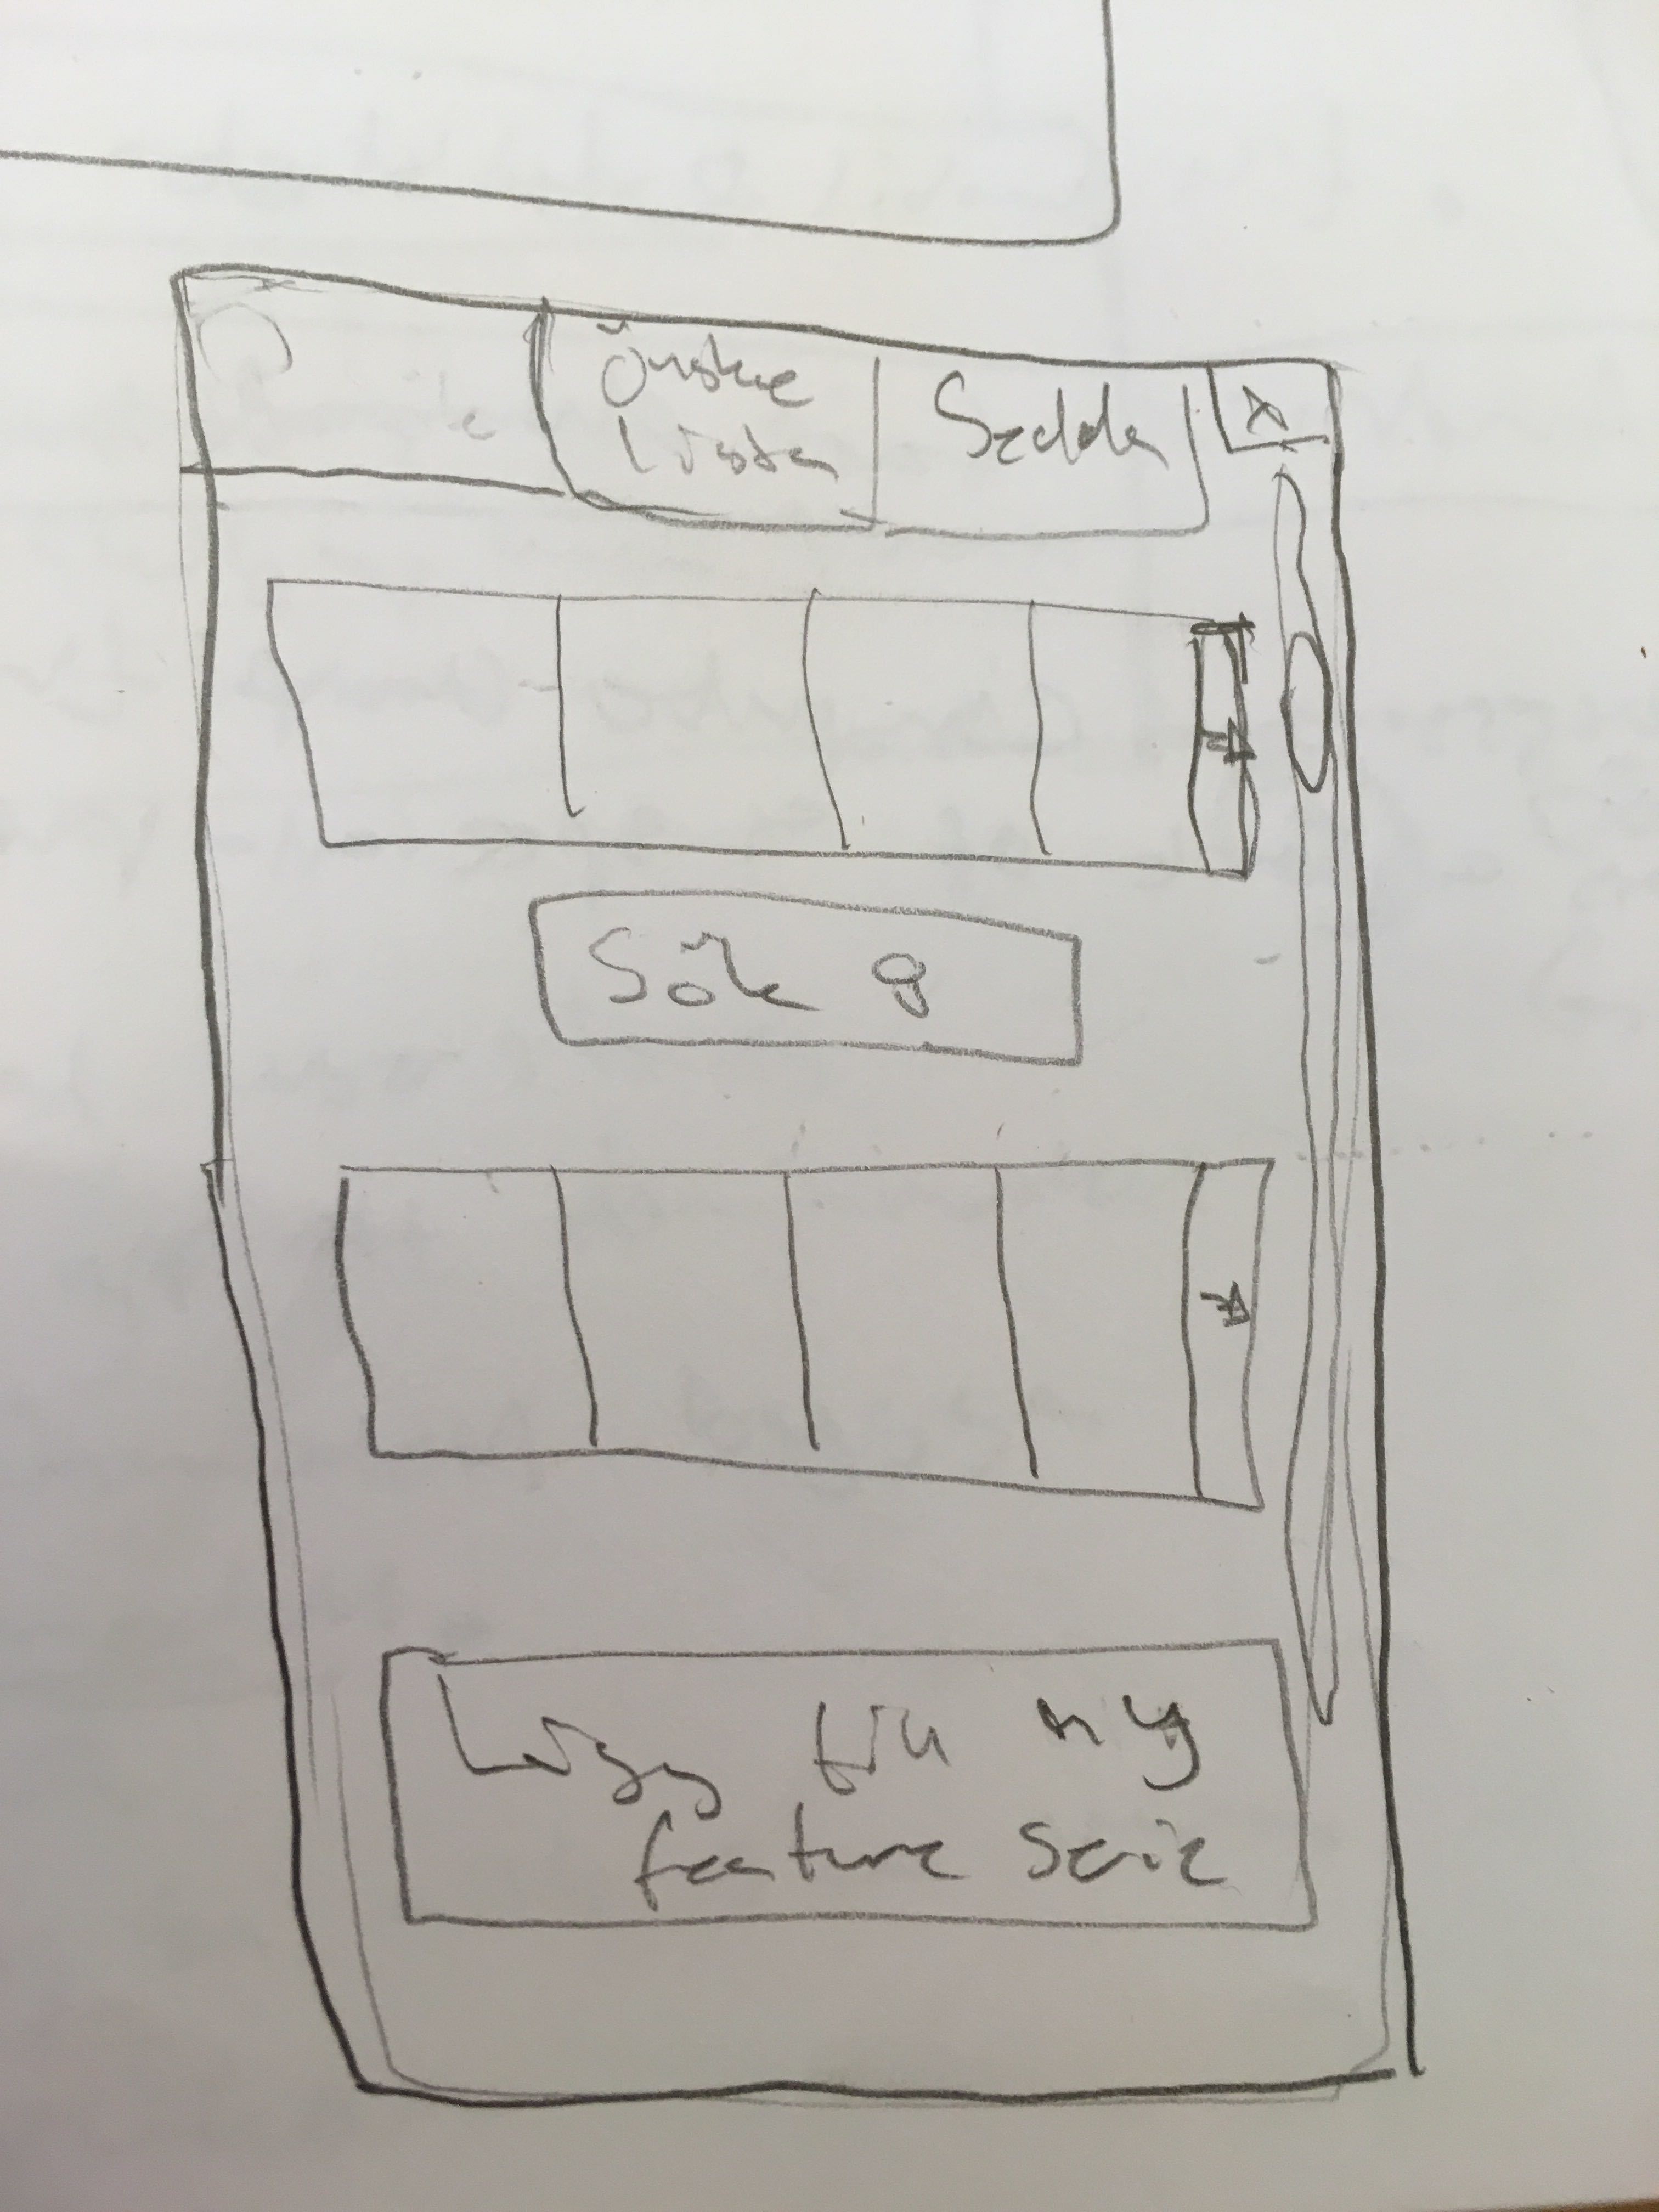 Önske
lista
Sedda
X
Sök
Lägg till ny
feature serie